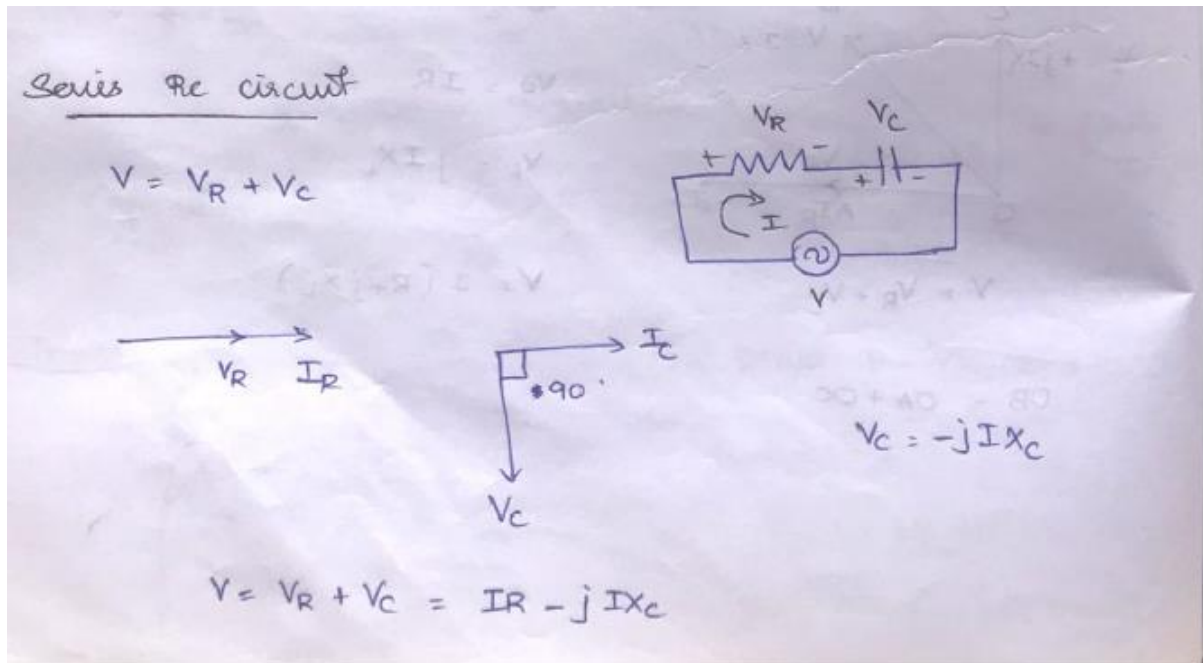 Series Rc circuit
V = V_R + V_C
V_R V_C
+ - + -
I
V
V_R I_R
I_C
90°
V_C
V_C = -j I X_C
V = V_R + V_C = IR - j IX_C